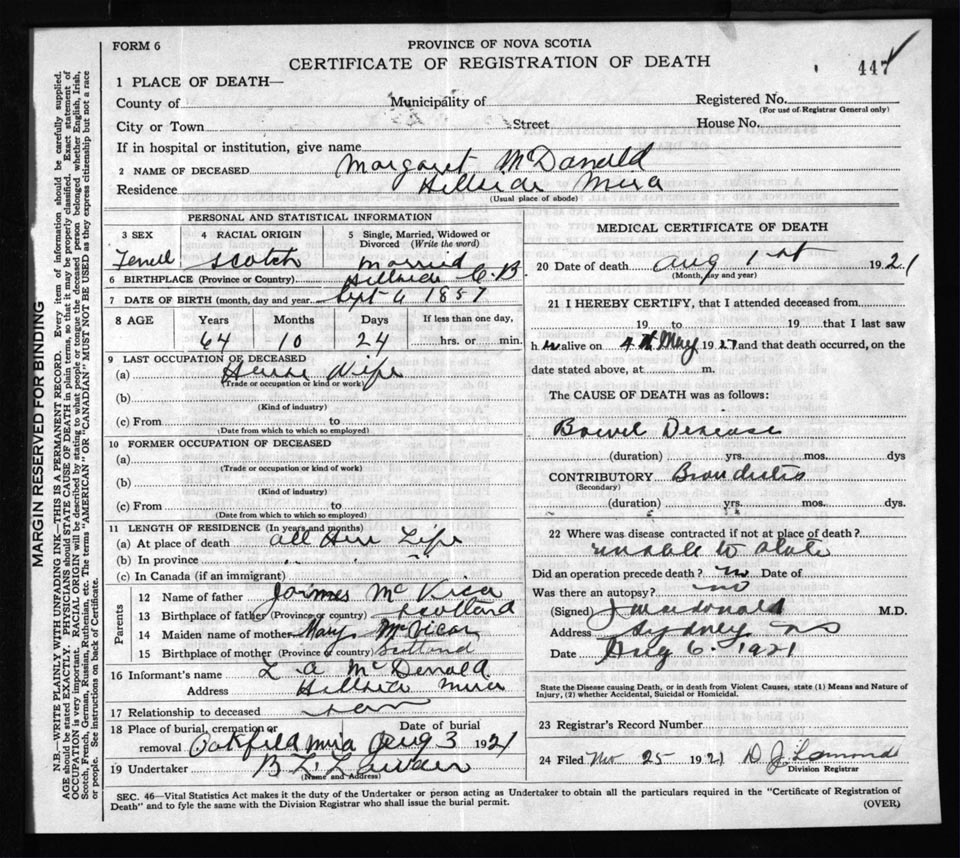 FORM 6
PROVINCE OF NOVA SCOTIA
CERTIFICATE OF REGISTRATION OF DEATH
447
1 PLACE OF DEATH—
County of Municipality of Registered No.
(For use of Registrar General only)
City or Town Street House No.
If in hospital or institution, give name
2 NAME OF DECEASED Margaret McDonald
Residence Hillside Mira
(Usual place of abode)
PERSONAL AND STATISTICAL INFORMATION
3 SEX 4 RACIAL ORIGIN 5 Single, Married, Widowed or Divorced (Write the word)
Scotch Married
6 BIRTHPLACE (Province or Country) Hillside C.B
7 DATE OF BIRTH (month, day and year) Sept 6 1857
8 AGE Years Months Days If less than one day,
64 10 24 hrs. or min.
9 LAST OCCUPATION OF DECEASED
(a) House Wife
(Trade or occupation or kind or work)
(b)
(Kind of industry)
(c) From to
(Date from which to which so employed)
10 FORMER OCCUPATION OF DECEASED
(a)
(Trade or occupation or kind of work)
(b)
(Kind of industry)
(c) From to
(Date from which to which so employed)
11 LENGTH OF RESIDENCE (In years and months)
(a) At place of death all Her Life
(b) In province " "
(c) In Canada (if an immigrant)
Parents
12 Name of father James
13 Birthplace of father (Province or country) Scotland
14 Maiden name of mother Mary McVicar
15 Birthplace of mother (Province or country) Scotland
16 Informant's name L A McDonald
Address Hillside Mira
17 Relationship to deceased
18 Place of burial, cremation or removal Date of burial
Oakfield Mira Aug 3 1921
19 Undertaker B L
(Name and Address)
MEDICAL CERTIFICATE OF DEATH
20 Date of death Aug 1st 1921
(Month, day and year)
21 I HEREBY CERTIFY, that I attended deceased from
19 to 19 that I last saw
h er alive on 4th May 1921 and that death occurred, on the
date stated above, at m.
The CAUSE OF DEATH was as follows:
Bowel Disease
(duration) yrs. mos. dys
CONTRIBUTORY Bronchitis
(Secondary)
(duration) yrs. mos. dys.
22 Where was disease contracted if not at place of death?
unable to state
Did an operation precede death? no Date of
Was there an autopsy? no
(Signed) J Macdonald M.D.
Address Sydney NS
Date Aug 6. 1921
State the Disease causing Death, or in death from Violent Causes, state (1) Means and Nature of
Injury, (2) whether Accidental, Suicidal or Homicidal.
23 Registrar's Record Number
24 Filed Nov 25 1921 D J
Division Registrar
SEC. 46—Vital Statistics Act makes it the duty of the Undertaker or person acting as Undertaker to obtain all the particulars required in the "Certificate of Registration of
Death" and to fyle the same with the Division Registrar who shall issue the burial permit. (OVER)
MARGIN RESERVED FOR BINDING
N.B.—WRITE PLAINLY WITH UNFADING INK—THIS IS A PERMANENT RECORD. Every item of information should be carefully supplied.
AGE should be stated EXACTLY. PHYSICIANS should STATE CAUSE OF DEATH in plain terms, so that it may be properly classified. Exact statement of
OCCUPATION is very important. RACIAL ORIGIN will be described by stating to what people or tongue the deceased person belonged whether English, Irish,
Scotch, French, German, Russian, Ruthenian, etc. The terms "AMERICAN" OR "CANADIAN" MUST NOT BE USED as they express citizenship but not a race
or people. See instructions on back of Certificate.